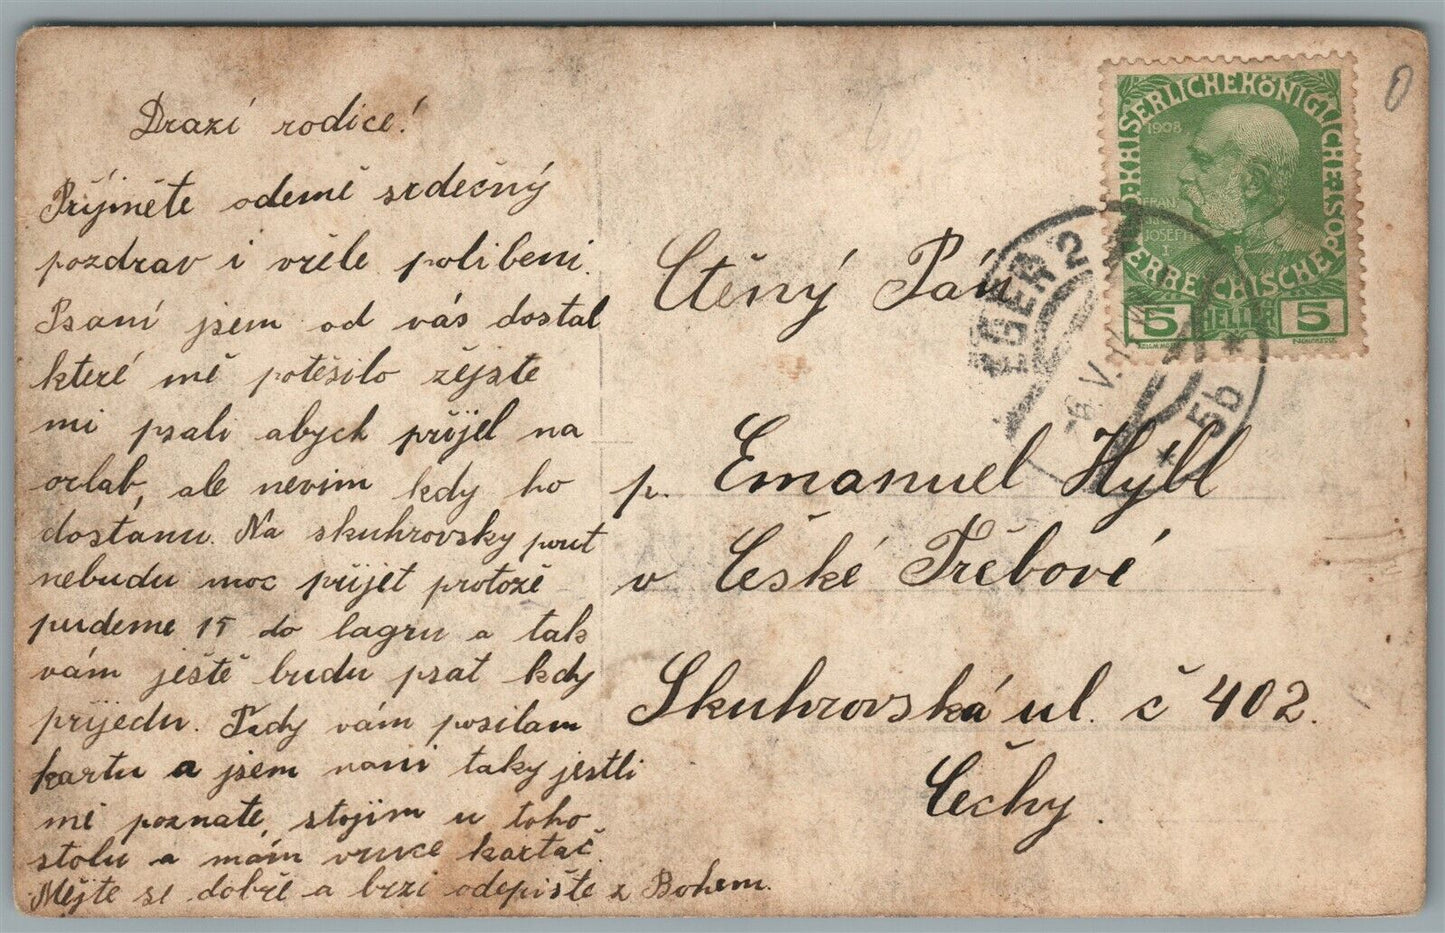 Drazí rodice!
Přijměte odemě srdečný
pozdrav i vřele polibeni.
Psaní jsem od vás dostal
které mě potěšilo zějste
mi psali abych přijel na
orlab, ale nevim kdy ho
dostanu. Na skuhrovsky pout
nebudu moc přijet protožě
pudeme 15 do lagru a tak
vám ještě budu psat kdy
prijedu. Tedy vám posilam
kartu a jsem nani taky jestli
mě poznate, stojim u toho
stolu a mám vruce kartač.
Mějte se dobře a brzi odepište z Bohem.
Ctěný Pán
p. Emanuel Hýbl
v České Třebové
Skuhrovská ul. č 402.
Čechy.
KAISERLICHE KÖNIGLICHE ÖSTERREICHISCHE POST
1908
FRANZ
JOSEPH
I
5 HELLER 5
EGER 2
V.
* 5b *
0